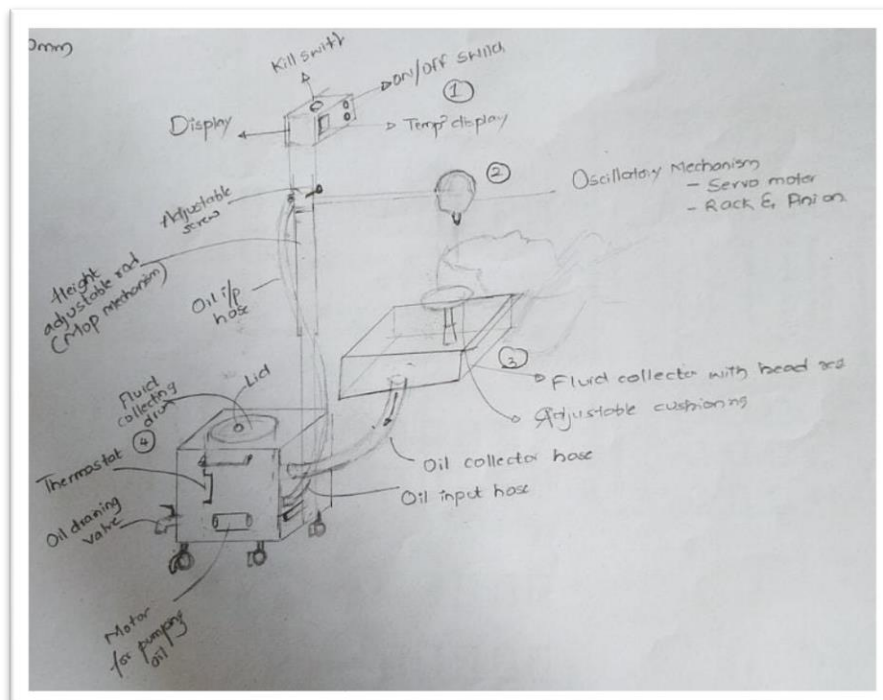 0mm)
Kill switt
ON/OFF switch
1
Display
Temp? display
2
Oscillatory Mechanism
- Servo motor
- Rack & Pinion
Adjustable
screw
Height
adjustable rod
(Mop mechanism)
Oil i/p
hose
3
Fluid collector with head res
Adjustable cushioning
Fluid
collecting
dru
Lid
4
Thermostat
Oil collector hose
Oil input hose
Oil draning
valve
Motor
for pumping
oil